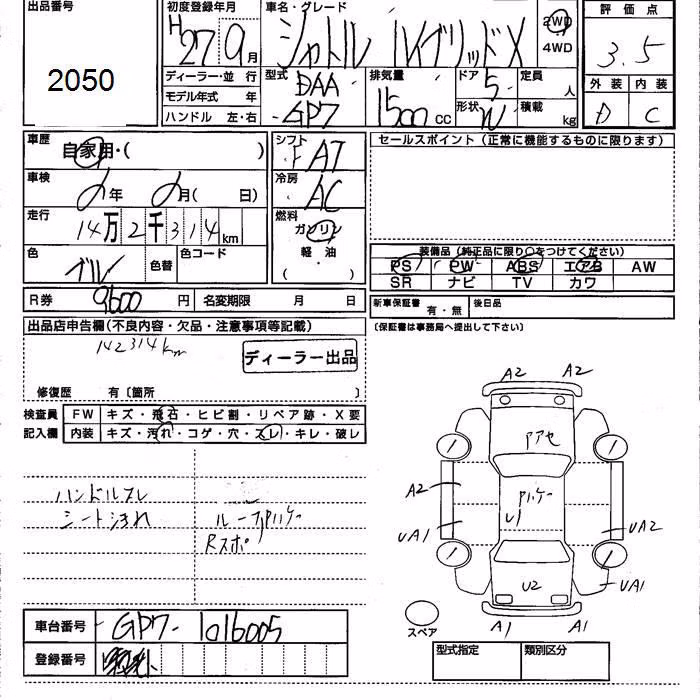 出品番号 初度登録年月 車名・グレード 評価点
2050 H27 9月 シャトル ハイブリッドX 2WD 3.5
4WD
ディーラー・並行 型式 DAA 排気量 ドア 5 定員 人 外装 内装
モデル年式 年 GP7 1500cc 形状 W 積載 kg D C
ハンドル 左・右
車歴 自家用・( ) シフト FAT セールスポイント(正常に機能するものに限ります)
車検 年 月( 日) 冷房 AC
走行 14万2千314km 燃料 ガソリン
色 ブルー 色替 色コード 軽油 装備品(純正品に限り○をつけてください)
( ) PS PW ABS エアB AW
SR ナビ TV カワ
R券 9600円 名変期限 月 日 新車保証書 有・無 後日品
出品店申告欄(不良内容・欠品・注意事項等記載) (保証書は事務局へ提出して下さい)
142314km
ディーラー出品
修復歴 有〔箇所 〕
検査員 FW キズ・飛石・ヒビ割・リペア跡・X要
記入欄 内装 キズ・汚れ・コゲ・穴・スレ・キレ・破レ
A2 A2
アアセ
ハンドルスレ A2
シート汚れ ルーフ Rスポ
U1
UA1 UA2
U2 UA1
スペア A1 A1
車台番号 GP7-1016005
登録番号
型式指定 類別区分